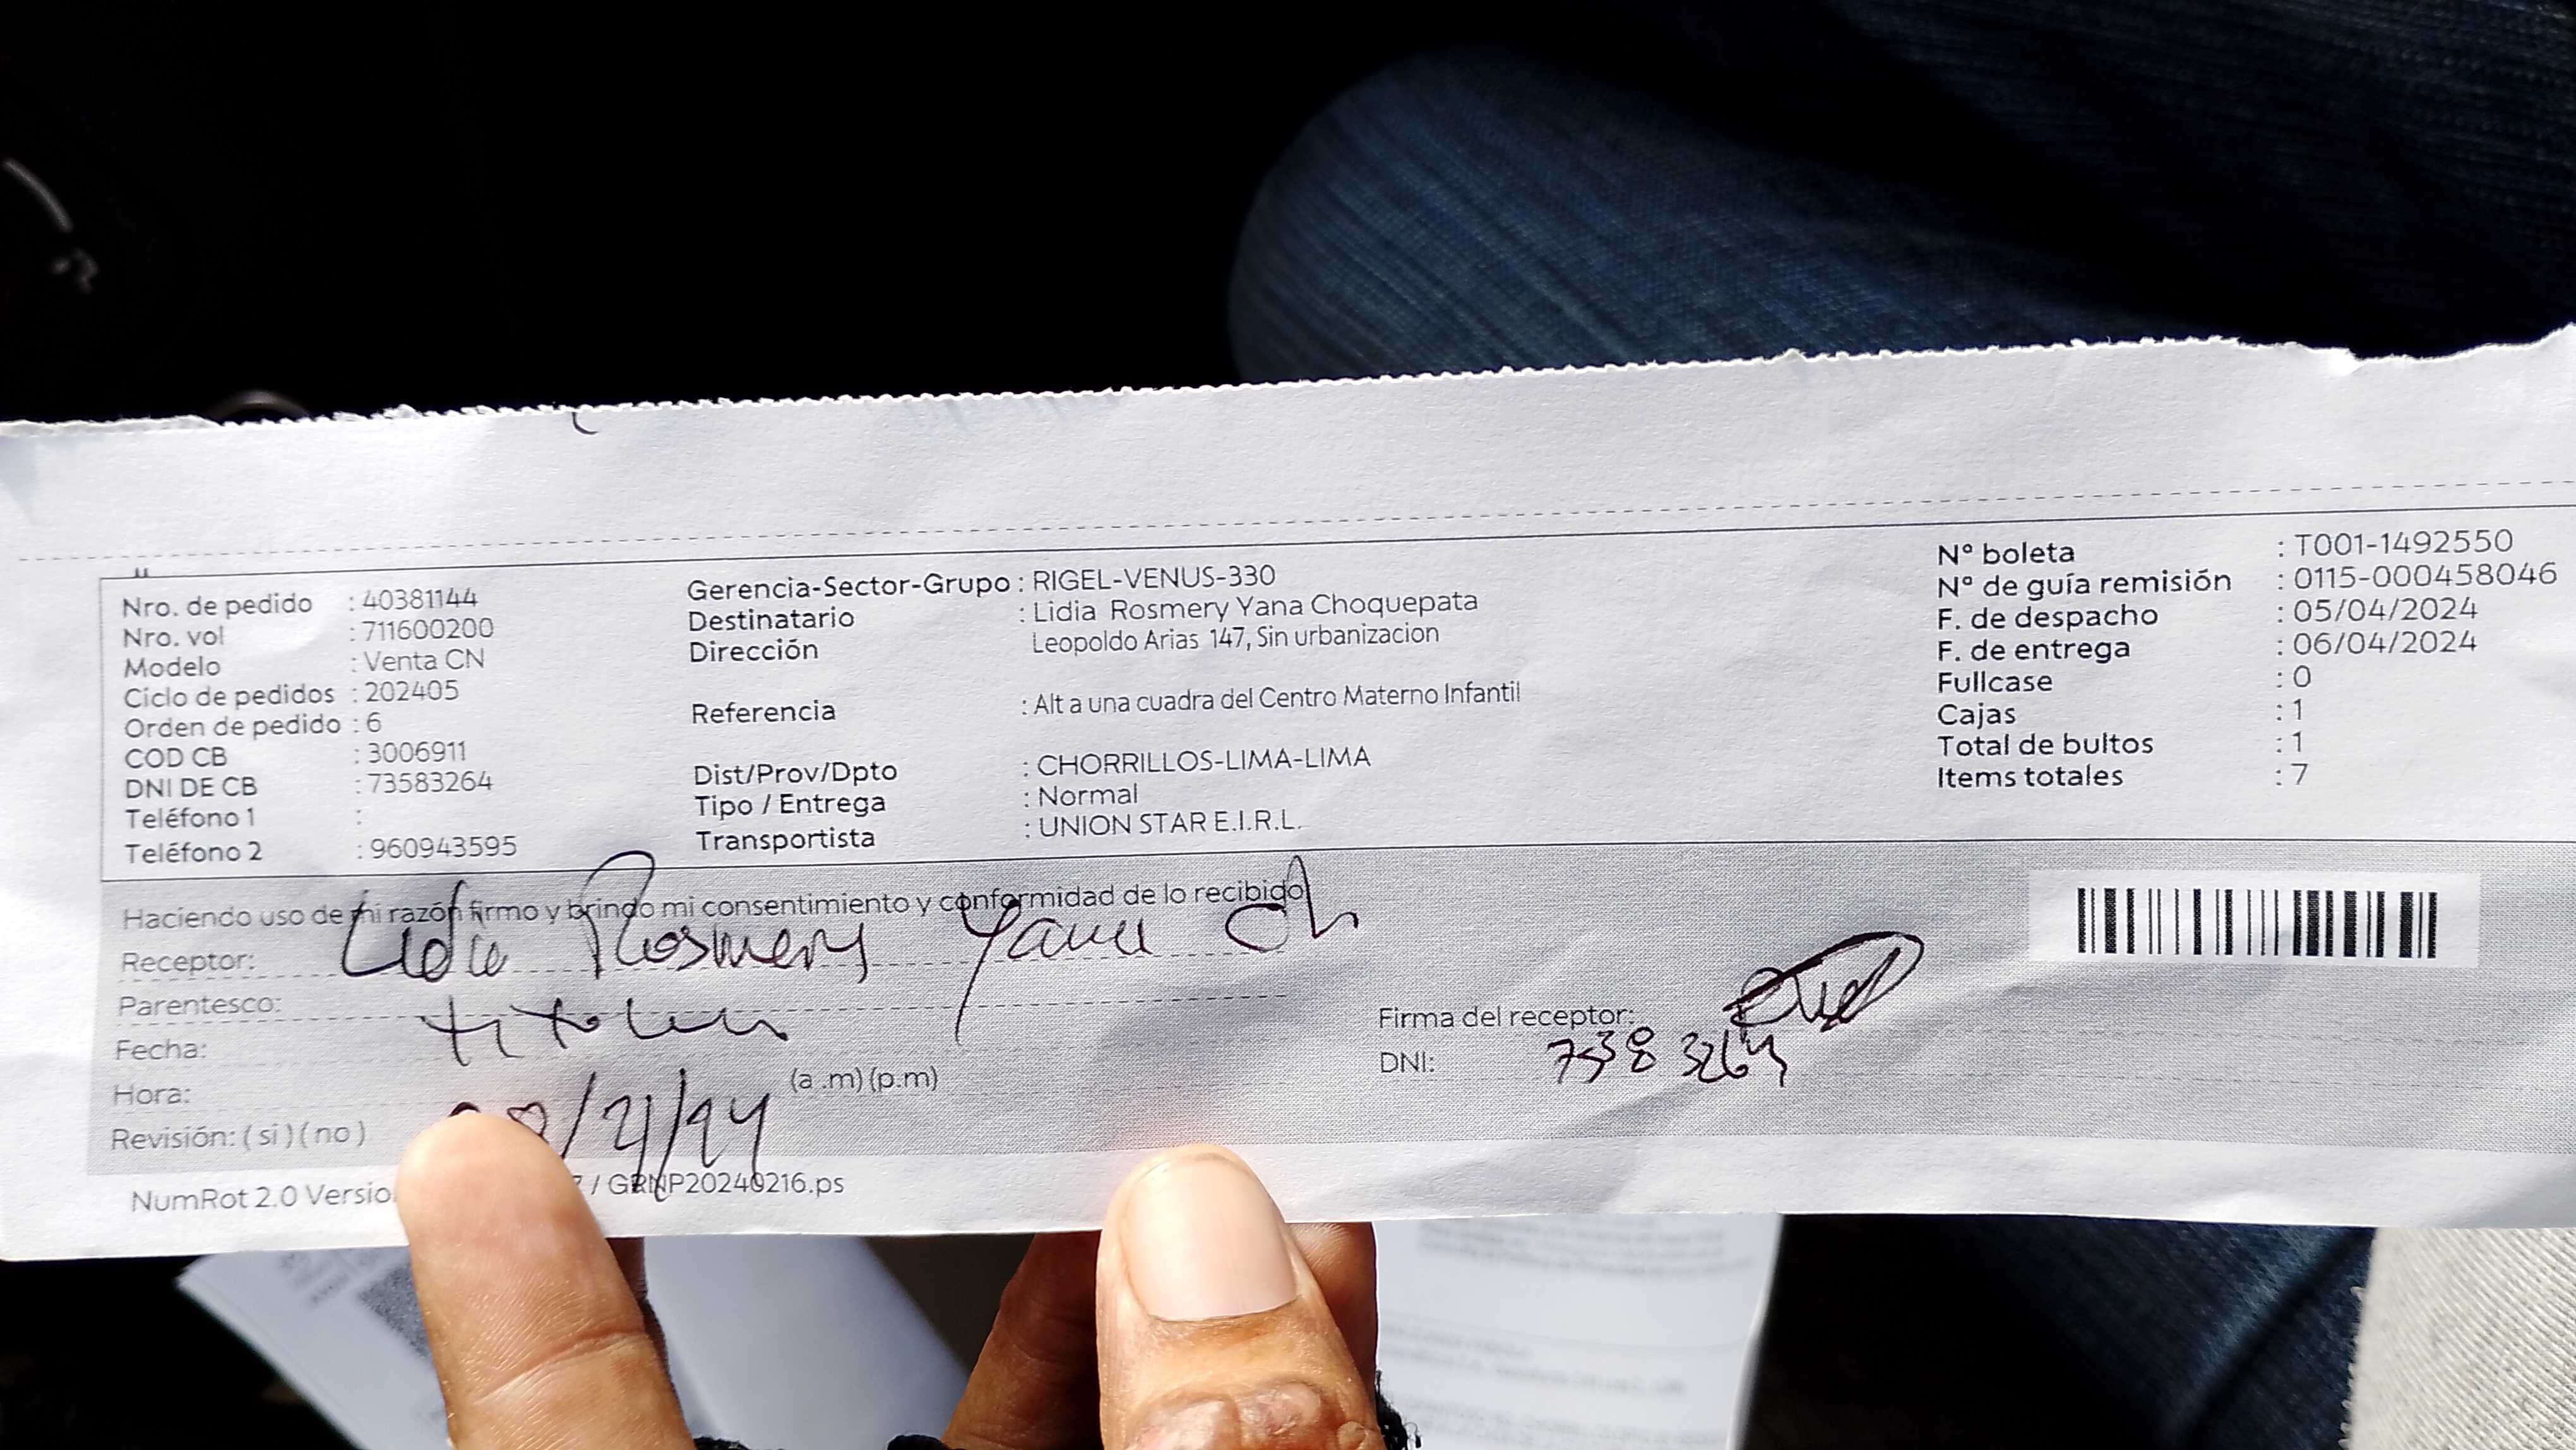 Nro. de pedido : 40381144
Nro. vol : 711600200
Modelo : Venta CN
Ciclo de pedidos : 202405
Orden de pedido : 6
COD CB : 3006911
DNI DE CB : 73583264
Teléfono 1 :
Teléfono 2 : 960943595
Gerencia-Sector-Grupo : RIGEL-VENUS-330
Destinatario : Lidia Rosmery Yana Choquepata
Dirección Leopoldo Arias 147, Sin urbanizacion
Referencia : Alt a una cuadra del Centro Materno Infantil
Dist/Prov/Dpto : CHORRILLOS-LIMA-LIMA
Tipo / Entrega : Normal
Transportista : UNION STAR E.I.R.L.
N° boleta : T001-1492550
N° de guía remisión : 0115-000458046
F. de despacho : 05/04/2024
F. de entrega : 06/04/2024
Fullcase : 0
Cajas : 1
Total de bultos : 1
Items totales : 7
Haciendo uso de mi razón firmo y brindo mi consentimiento y conformidad de lo recibido
Receptor: Lidia Rosmery Yana Ch
Parentesco: titular
Fecha:
Hora: (a .m) (p.m)
Revisión: ( si ) ( no )
Firma del receptor:
DNI:
NumRot 2.0 / GRNP20240216.ps